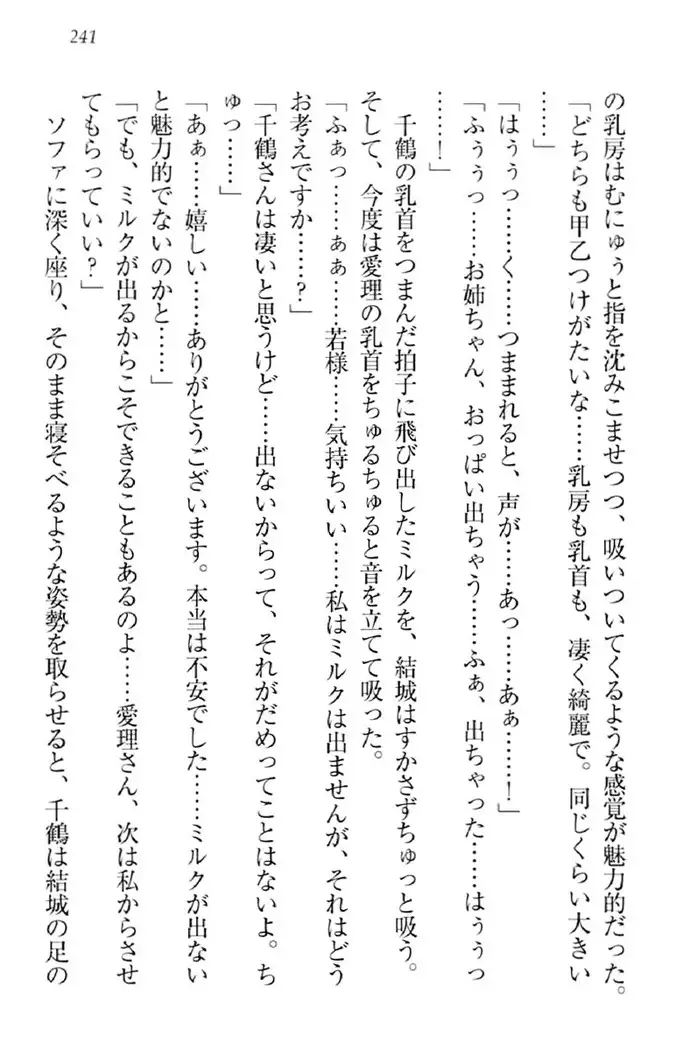 241
の乳房はむにゅぅと指を沈みこませつつ、吸いついてくるような感覚が魅力的だった。
「どちらも甲乙つけがたいな……乳房も乳首も、凄く綺麗で。同じくらい大きい
……」
「はぅぅっ……く……つままれると、声が……あっ……あぁ……！」
「ふぅぅっ……お姉ちゃん、おっぱい出ちゃう……ふぁ、出ちゃった……はぅぅっ
……！」
千鶴の乳首をつまんだ拍子に飛び出したミルクを、結城はすかさずちゅっと吸う。
そして、今度は愛理の乳首をちゅるちゅると音を立てて吸った。
「ふぁっ……ぁぁ……若様……気持ちいい……私はミルクは出ませんが、それはどう
お考えですか……？」
「千鶴さんは凄いと思うけど……出ないからって、それがだめってことはないよ。ち
ゅっ……」
「あぁ……嬉しい……ありがとうございます。本当は不安でした……ミルクが出ない
と魅力的でないのかと……」
「でも、ミルクが出るからこそできることもあるのよ……愛理さん、次は私からさせ
てもらっていい？」
ソファに深く座り、そのまま寝そべるような姿勢を取らせると、千鶴は結城の足の